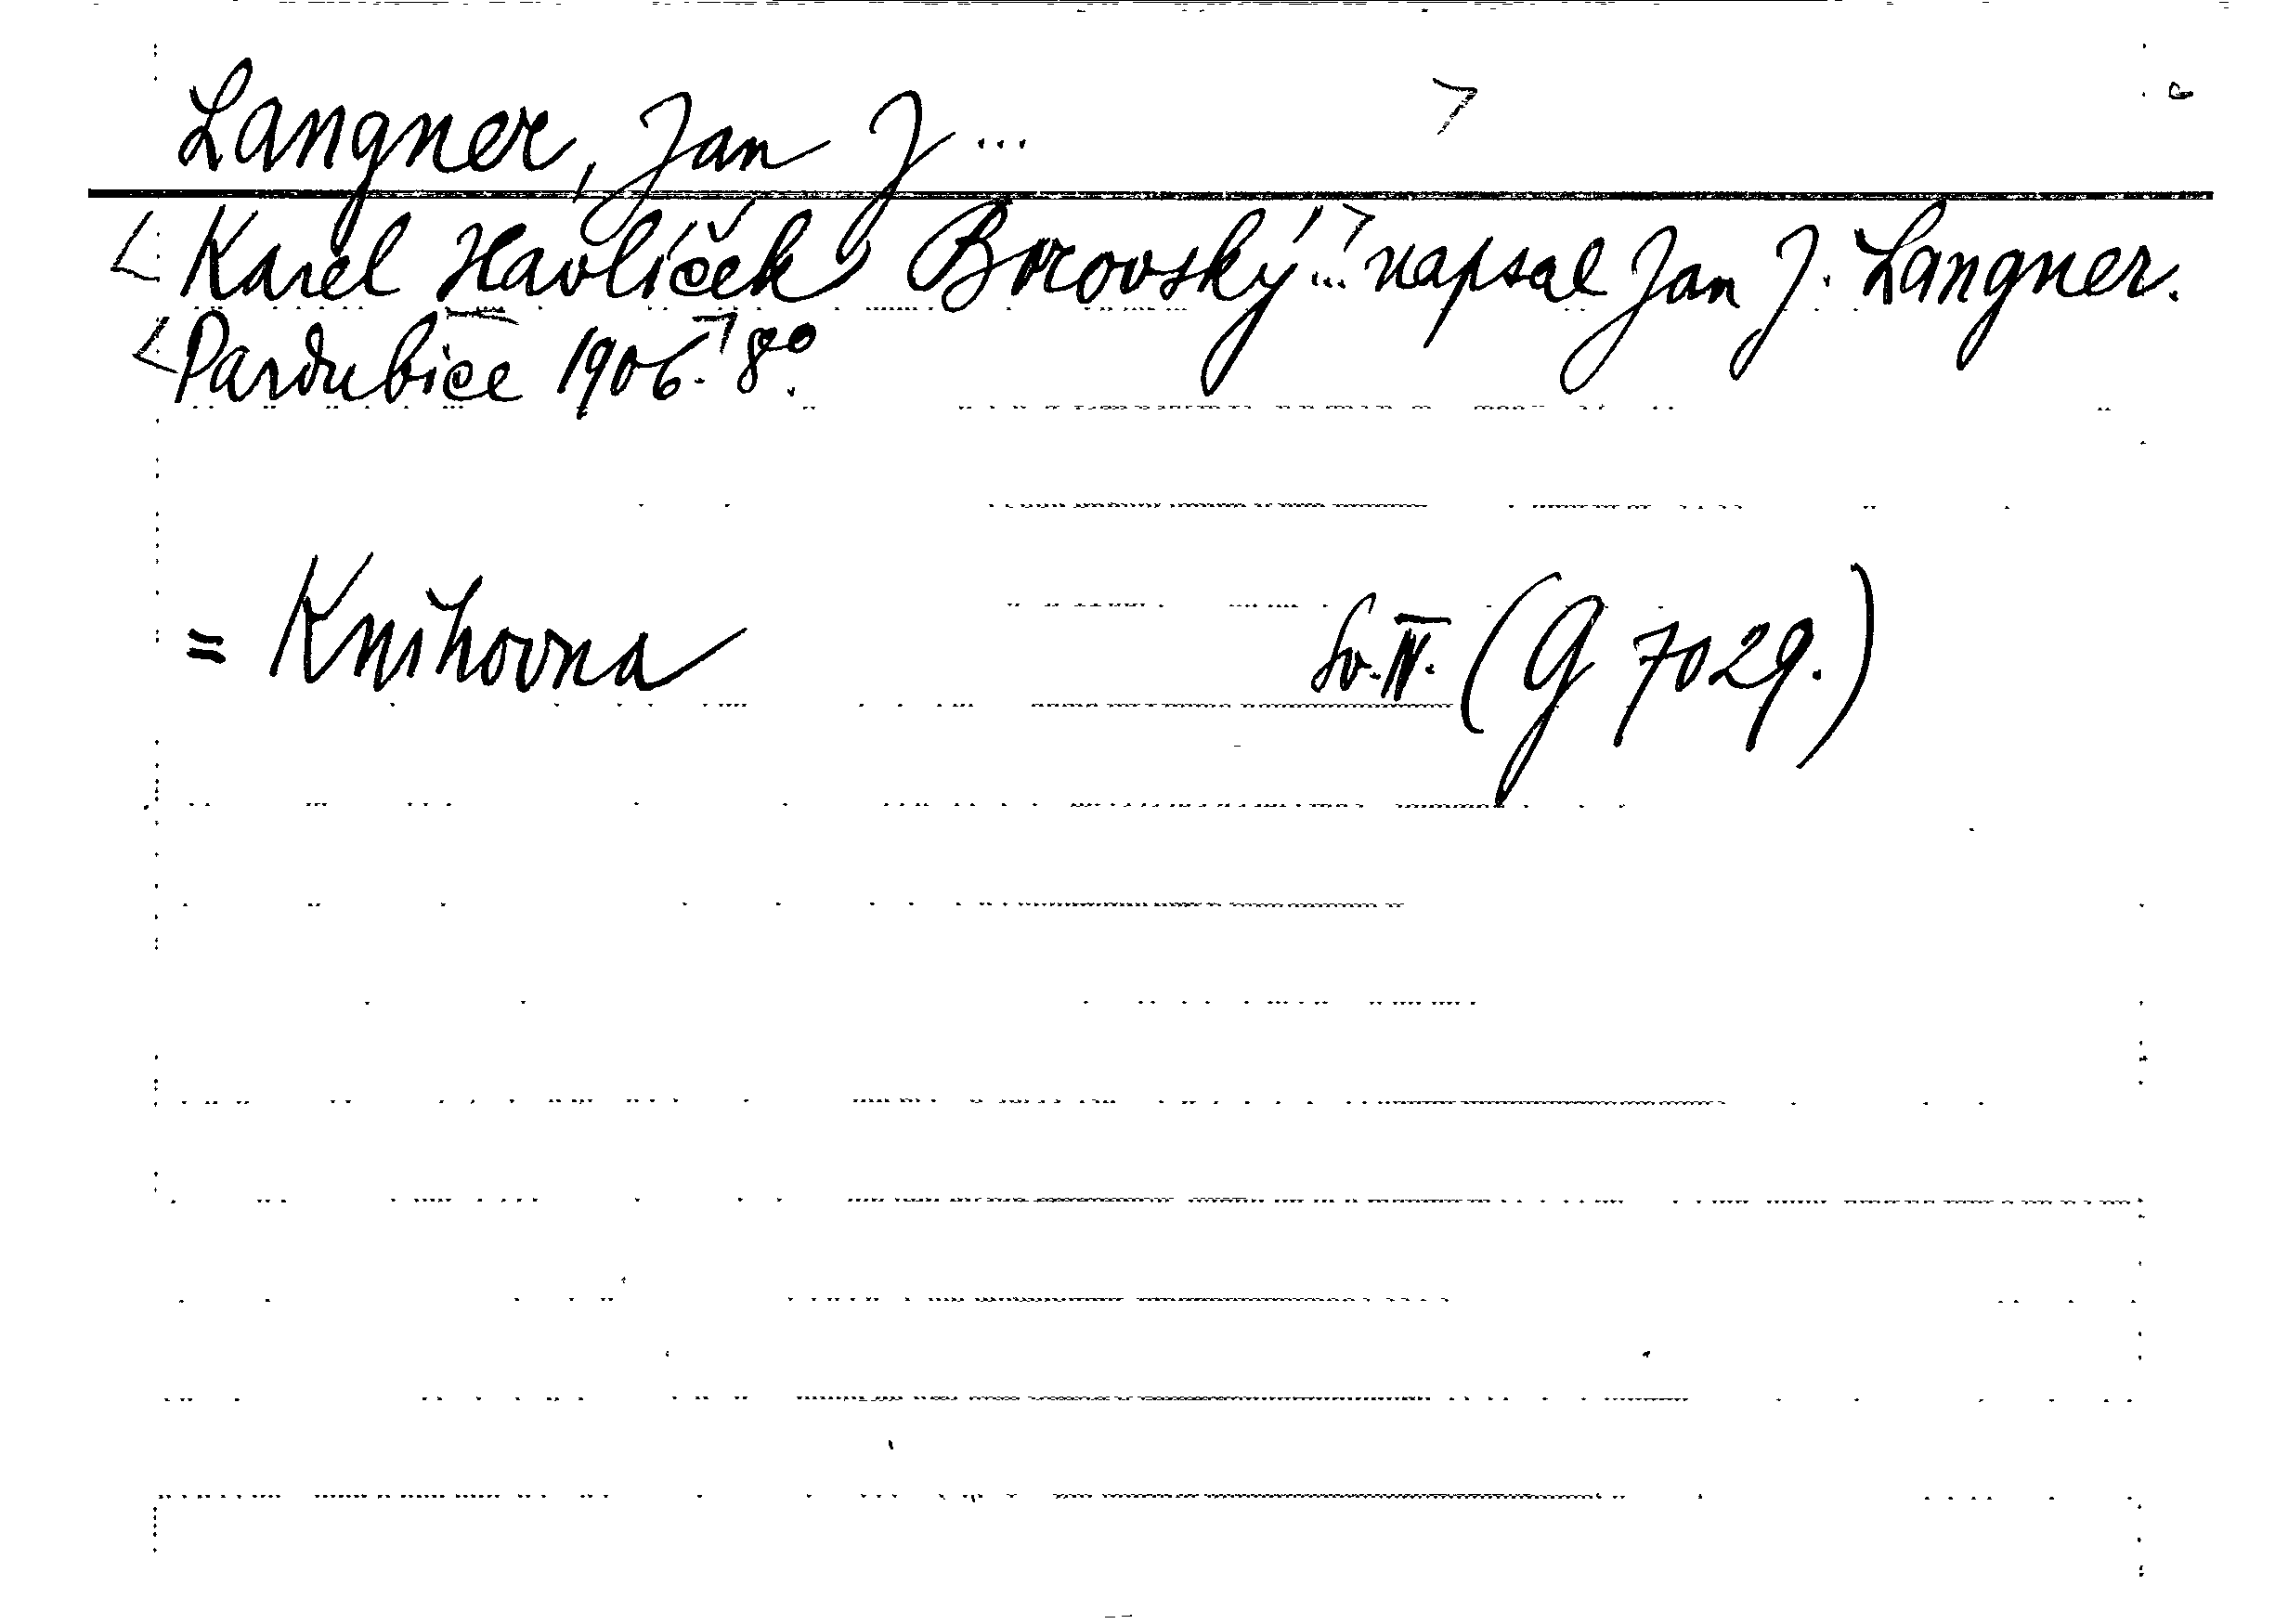 Langner, Jan J ...
Karel Havlíček Borovský ... napsal Jan J. Langner.
Pardubice 1906. 8°.
= Knihovna Sv. IV. (G 7029.)